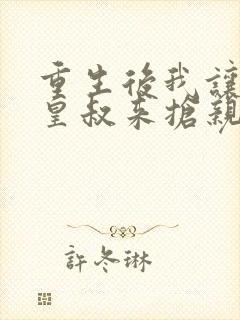 重生後我讓
皇叔來搶親
許冬琳